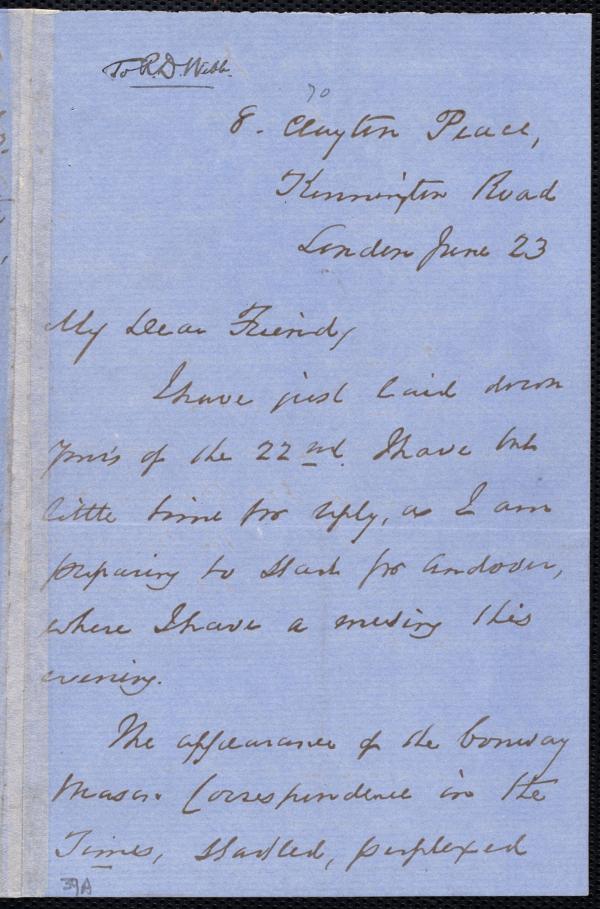 To R.D. Webb.
70
8. Clayton Place,
Kennington Road
London June 23
My Dear Friend,
I have just laid down
yours of the 22nd. I have but
little time for reply, as I am
preparing to start for Andover,
where I have a meeting this
evening.
The appearance of the Conway
Mason Correspondence in the
Times, startled, perplexed
39A